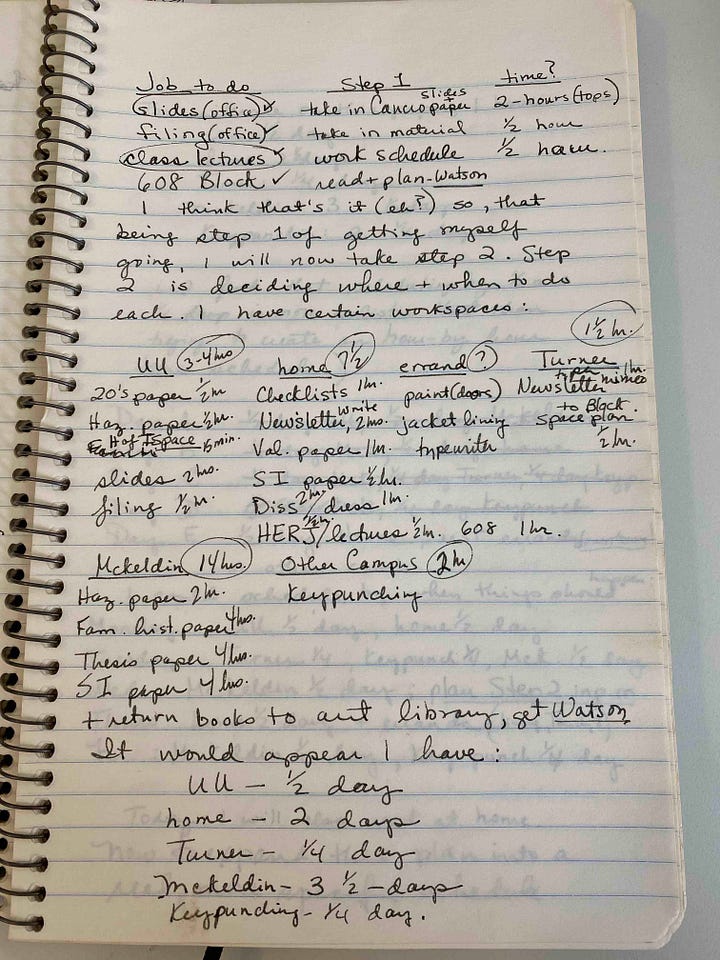 Job to do Step 1 time?
slides (office) ✓ take in Cancro paper + slides 2-hours (tops)
filing (office) ✓ take in material ½ hour
class lectures ✓ work schedule ½ hour.
608 Block ✓ read + plan - Watson
I think that's it (eh?) so, that
being step 1 of getting myself
going, I will now take step 2. Step
2 is deciding where + when to do
each. I have certain workspaces:
UU 3-4 hrs home 7½ errand ? Turner 1½ hr.
20's paper ½ hr Checklists 1 hr. paint (doors) Newsletter mimeo 1 hr.
Haz. paper ½ hr. Newsletter, write 2 hrs. jacket lining space plan to Block. ½ hr.
H of T space 15 min. Val. paper 1 hr. typewriter
slides 2 hrs. SI paper ½ hr.
filing ½ hr. Diss 2 hr / dress 1 hr.
HERJ ½ hr. / lectures ½ hr. 608 1 hr.
Mckeldin 14 hrs. Other Campus 2 hr
Haz. paper 2 hr. Keypunching
Fam. hist. paper 4 hrs.
Thesis paper 4 hrs.
SI paper 4 hrs.
+ return books to art library, get Watson
It would appear I have:
UU - ½ day
home - 2 days
Turner - ¼ day
Mckeldin - 3 ½ - days
Keypunching - ¼ day.